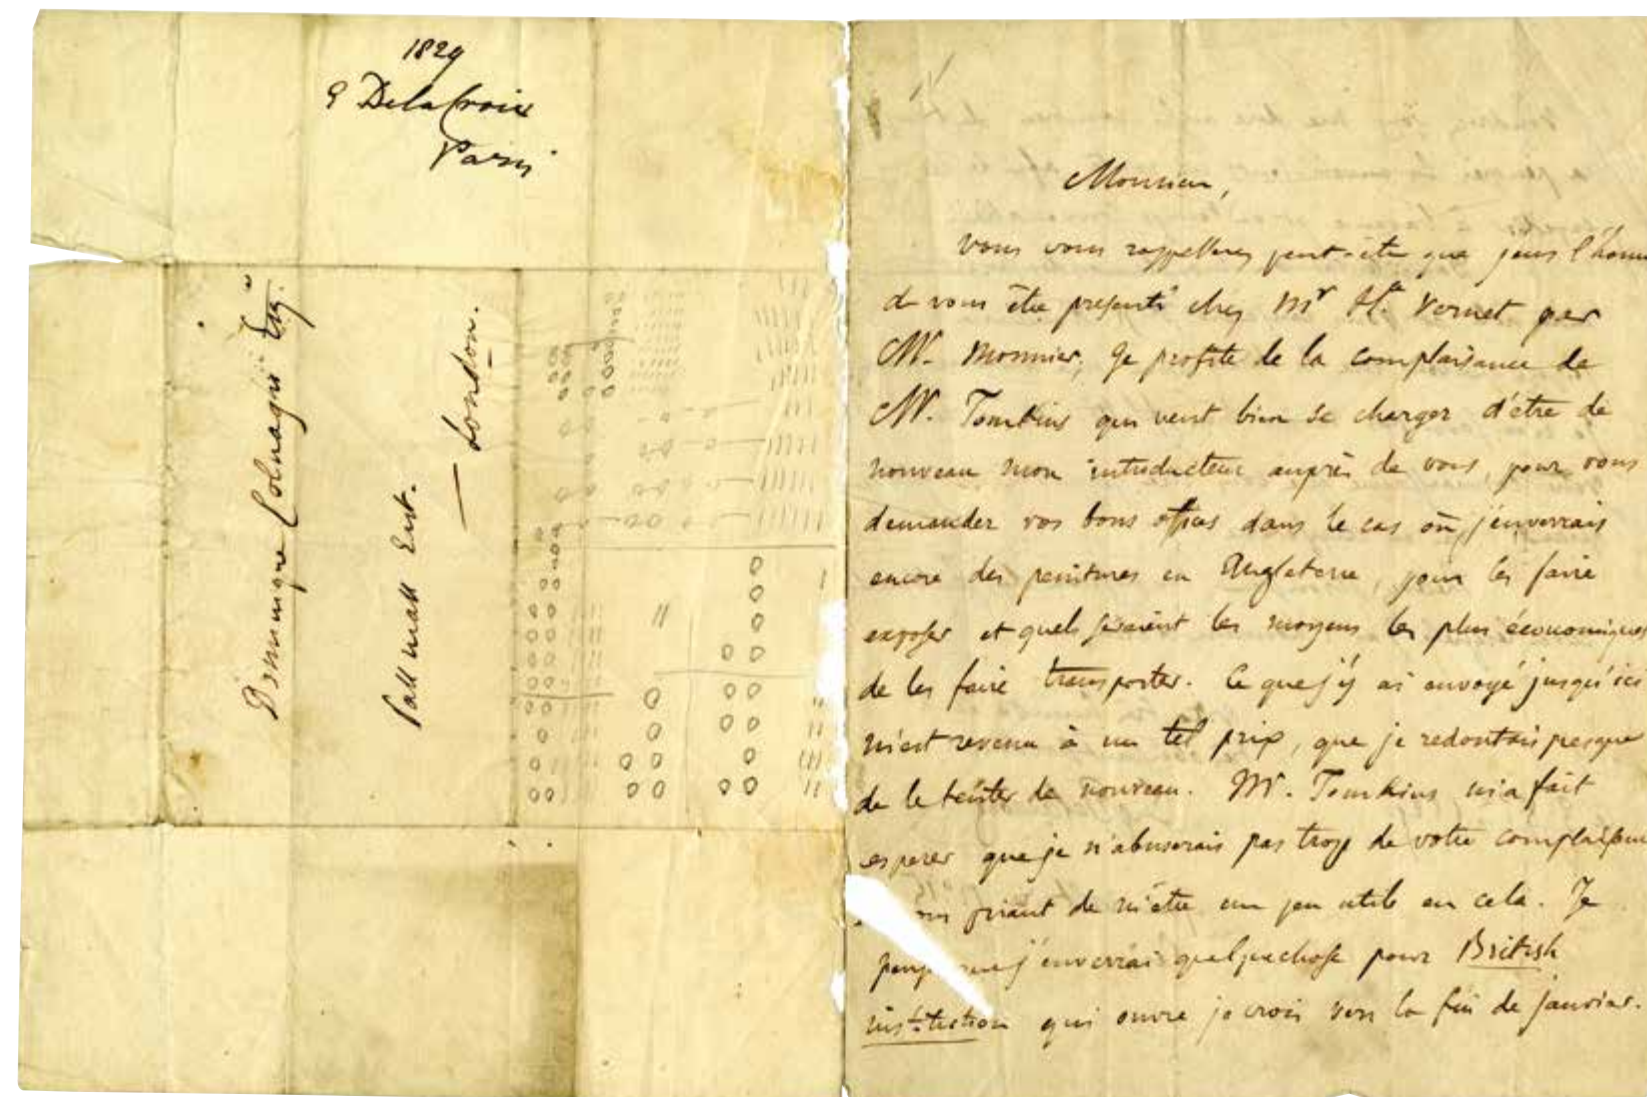 1829
E Delacroix
Paris
Dominique Colnaghi Esq.
Pall mall East.
London.
Monsieur,
vous vous rappellerez peut-être que j'eus l'honn
de vous être présenté chez Mr Hce. Vernet par
Mr. Monnier; je profite de la complaisance de
Mr. Tomkins qui veut bien se charger d'être de
nouveau mon introducteur auprès de vous, pour vous
demander vos bons offices dans le cas où j'enverrais
encore des peintures en Angleterre, pour les faire
exposer et quels seraient les moyens les plus économiques
de les faire transporter. Ce que j'y ai envoyé jusqu'ici
m'est revenu à un tel prix, que je redoutais presque
de le tenter de nouveau. Mr. Tomkins m'a fait
espérer que je n'abuserais pas trop de votre complaisan
priant de m'être un peu utile en cela. Je
que j'enverrai quelquechose pour British
institution qui ouvre je crois vers la fin de janvier.